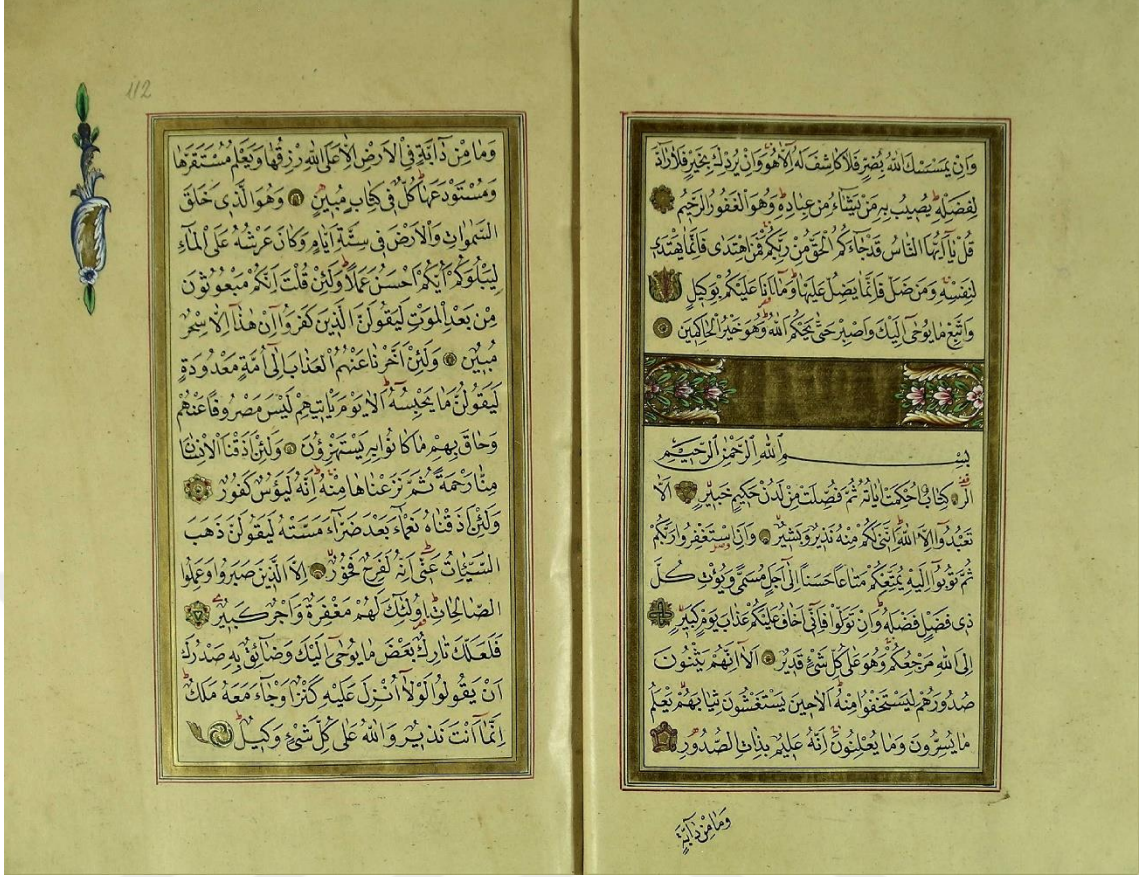 وَاِنْ يَمْسَسْكَ اللهُ بِضُرٍّ فَلَا كَاشِفَ لَهُ اِلَّا هُوَ وَاِنْ يُرِدْكَ بِخَيْرٍ فَلَا رَآدَّ
لِفَضْلِهِ يُصِيبُ بِهِ مَنْ يَشَآءُ مِنْ عِبَادِهِ وَهُوَ الْغَفُورُ الرَّحِيمُ
قُلْ يَآ اَيُّهَا النَّاسُ قَدْ جَآءَكُمُ الْحَقُّ مِنْ رَبِّكُمْ فَمَنِ اهْتَدٰى فَاِنَّمَا يَهْتَدِى
لِنَفْسِهِ وَمَنْ ضَلَّ فَاِنَّمَا يَضِلُّ عَلَيْهَا وَمَآ اَنَا عَلَيْكُمْ بِوَكِيلٍ
وَاتَّبِعْ مَا يُوحٰٓى اِلَيْكَ وَاصْبِرْ حَتّٰى يَحْكُمَ اللهُ وَهُوَ خَيْرُ الْحَاكِمِينَ
بِسْمِ اللهِ الرَّحْمٰنِ الرَّحِيمِ
الٓرٰ كِتَابٌ اُحْكِمَتْ اٰيَاتُهُ ثُمَّ فُصِّلَتْ مِنْ لَدُنْ حَكِيمٍ خَبِيرٍ اَلَّا
تَعْبُدُوٓا اِلَّا اللهَ اِنَّنِى لَكُمْ مِنْهُ نَذِيرٌ وَبَشِيرٌ وَاَنِ اسْتَغْفِرُوا رَبَّكُمْ
ثُمَّ تُوبُوٓا اِلَيْهِ يُمَتِّعْكُمْ مَتَاعًا حَسَنًا اِلٰٓى اَجَلٍ مُسَمًّى وَيُؤْتِ كُلَّ
ذِى فَضْلٍ فَضْلَهُ وَاِنْ تَوَلَّوْا فَاِنِّٓى اَخَافُ عَلَيْكُمْ عَذَابَ يَوْمٍ كَبِيرٍ
اِلَى اللهِ مَرْجِعُكُمْ وَهُوَ عَلٰى كُلِّ شَىْءٍ قَدِيرٌ اَلَآ اِنَّهُمْ يَثْنُونَ
صُدُورَهُمْ لِيَسْتَخْفُوا مِنْهُ اَلَا حِينَ يَسْتَغْشُونَ ثِيَابَهُمْ يَعْلَمُ
مَا يُسِرُّونَ وَمَا يُعْلِنُونَ اِنَّهُ عَلِيمٌ بِذَاتِ الصُّدُورِ
وَمَا مِنْ دَآبَّةٍ
112
وَمَا مِنْ دَآبَّةٍ فِى الْاَرْضِ اِلَّا عَلَى اللهِ رِزْقُهَا وَيَعْلَمُ مُسْتَقَرَّهَا
وَمُسْتَوْدَعَهَا كُلٌّ فِى كِتَابٍ مُبِينٍ وَهُوَ الَّذِى خَلَقَ
السَّمٰوَاتِ وَالْاَرْضَ فِى سِتَّةِ اَيَّامٍ وَكَانَ عَرْشُهُ عَلَى الْمَآءِ
لِيَبْلُوَكُمْ اَيُّكُمْ اَحْسَنُ عَمَلًا وَلَئِنْ قُلْتَ اِنَّكُمْ مَبْعُوثُونَ
مِنْ بَعْدِ الْمَوْتِ لَيَقُولَنَّ الَّذِينَ كَفَرُوٓا اِنْ هٰذَآ اِلَّا سِحْرٌ
مُبِينٌ وَلَئِنْ اَخَّرْنَا عَنْهُمُ الْعَذَابَ اِلٰٓى اُمَّةٍ مَعْدُودَةٍ
لَيَقُولُنَّ مَا يَحْبِسُهُ اَلَا يَوْمَ يَاْتِيهِمْ لَيْسَ مَصْرُوفًا عَنْهُمْ
وَحَاقَ بِهِمْ مَا كَانُوا بِهِ يَسْتَهْزِؤُنَ وَلَئِنْ اَذَقْنَا الْاِنْسَانَ
مِنَّا رَحْمَةً ثُمَّ نَزَعْنَاهَا مِنْهُ اِنَّهُ لَيَؤُسٌ كَفُورٌ
وَلَئِنْ اَذَقْنَاهُ نَعْمَآءَ بَعْدَ ضَرَّآءَ مَسَّتْهُ لَيَقُولَنَّ ذَهَبَ
السَّيِّئَاتُ عَنِّى اِنَّهُ لَفَرِحٌ فَخُورٌ اِلَّا الَّذِينَ صَبَرُوا وَعَمِلُوا
الصَّالِحَاتِ اُولٰٓئِكَ لَهُمْ مَغْفِرَةٌ وَاَجْرٌ كَبِيرٌ
فَلَعَلَّكَ تَارِكٌ بَعْضَ مَا يُوحٰٓى اِلَيْكَ وَضَآئِقٌ بِهِ صَدْرُكَ
اَنْ يَقُولُوا لَوْلَآ اُنْزِلَ عَلَيْهِ كَنْزٌ اَوْ جَآءَ مَعَهُ مَلَكٌ
اِنَّمَآ اَنْتَ نَذِيرٌ وَاللهُ عَلٰى كُلِّ شَىْءٍ وَكِيلٌ